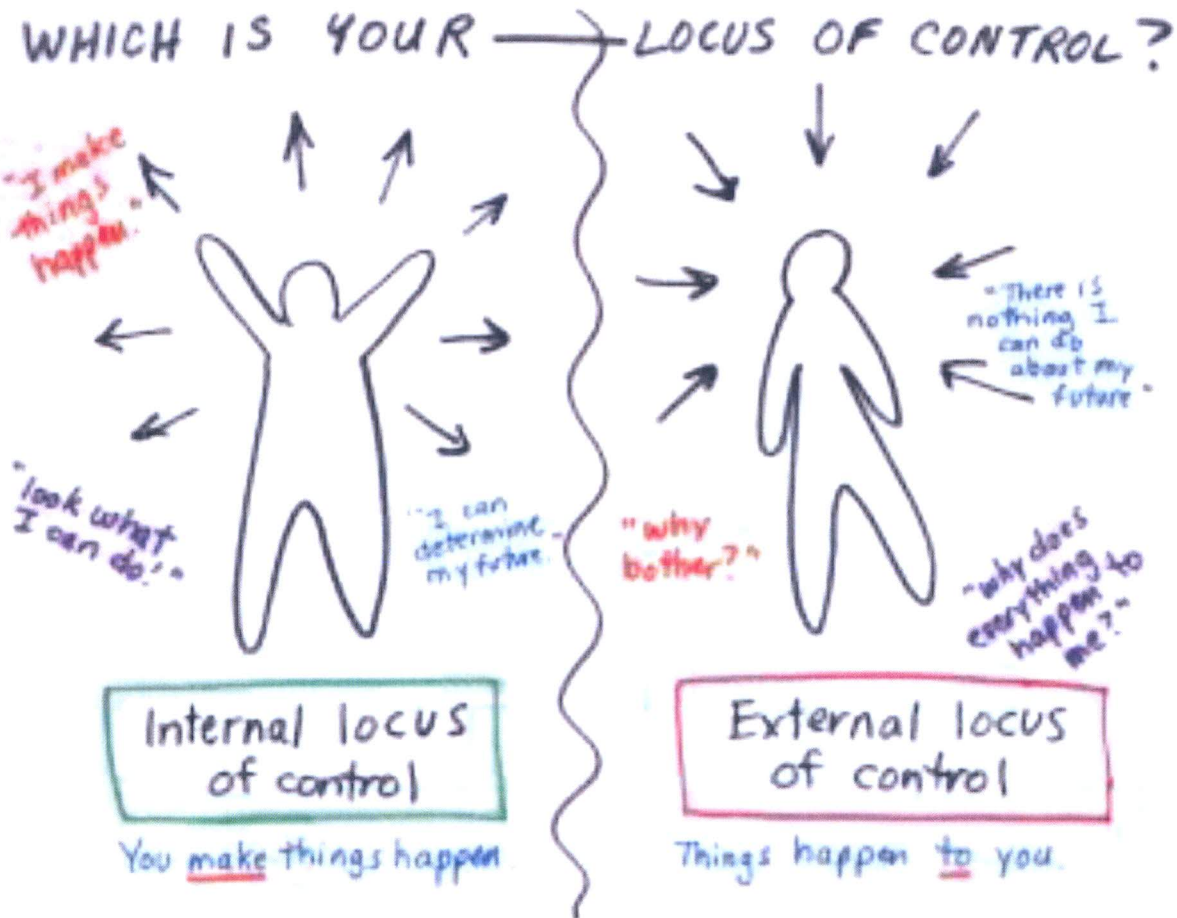 WHICH IS YOUR — LOCUS OF CONTROL?
"I make
things
happen."
"look what
I can do!"
"I can
determine
my future.
Internal locus
of control
You make things happen.
"There is
nothing I
can do
about my
future"
"why
bother?"
"why does
everything to
happen
me?"
External locus
of control
Things happen to you.